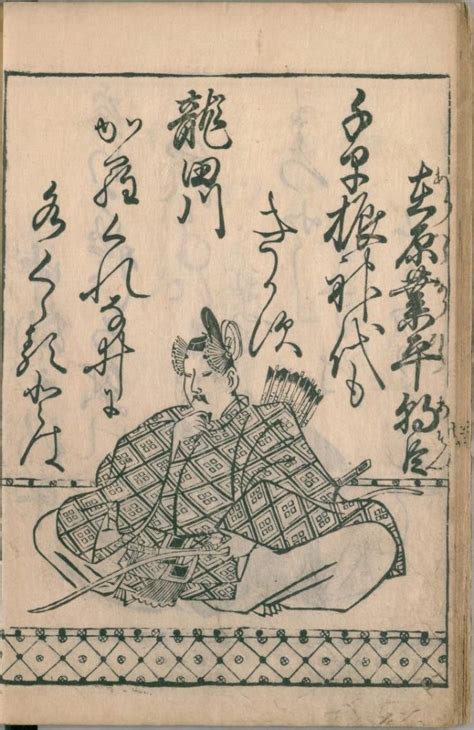 在原業平朝臣
千早振神代も
きかす
龍田川
からくれな井に
水くゝるとは